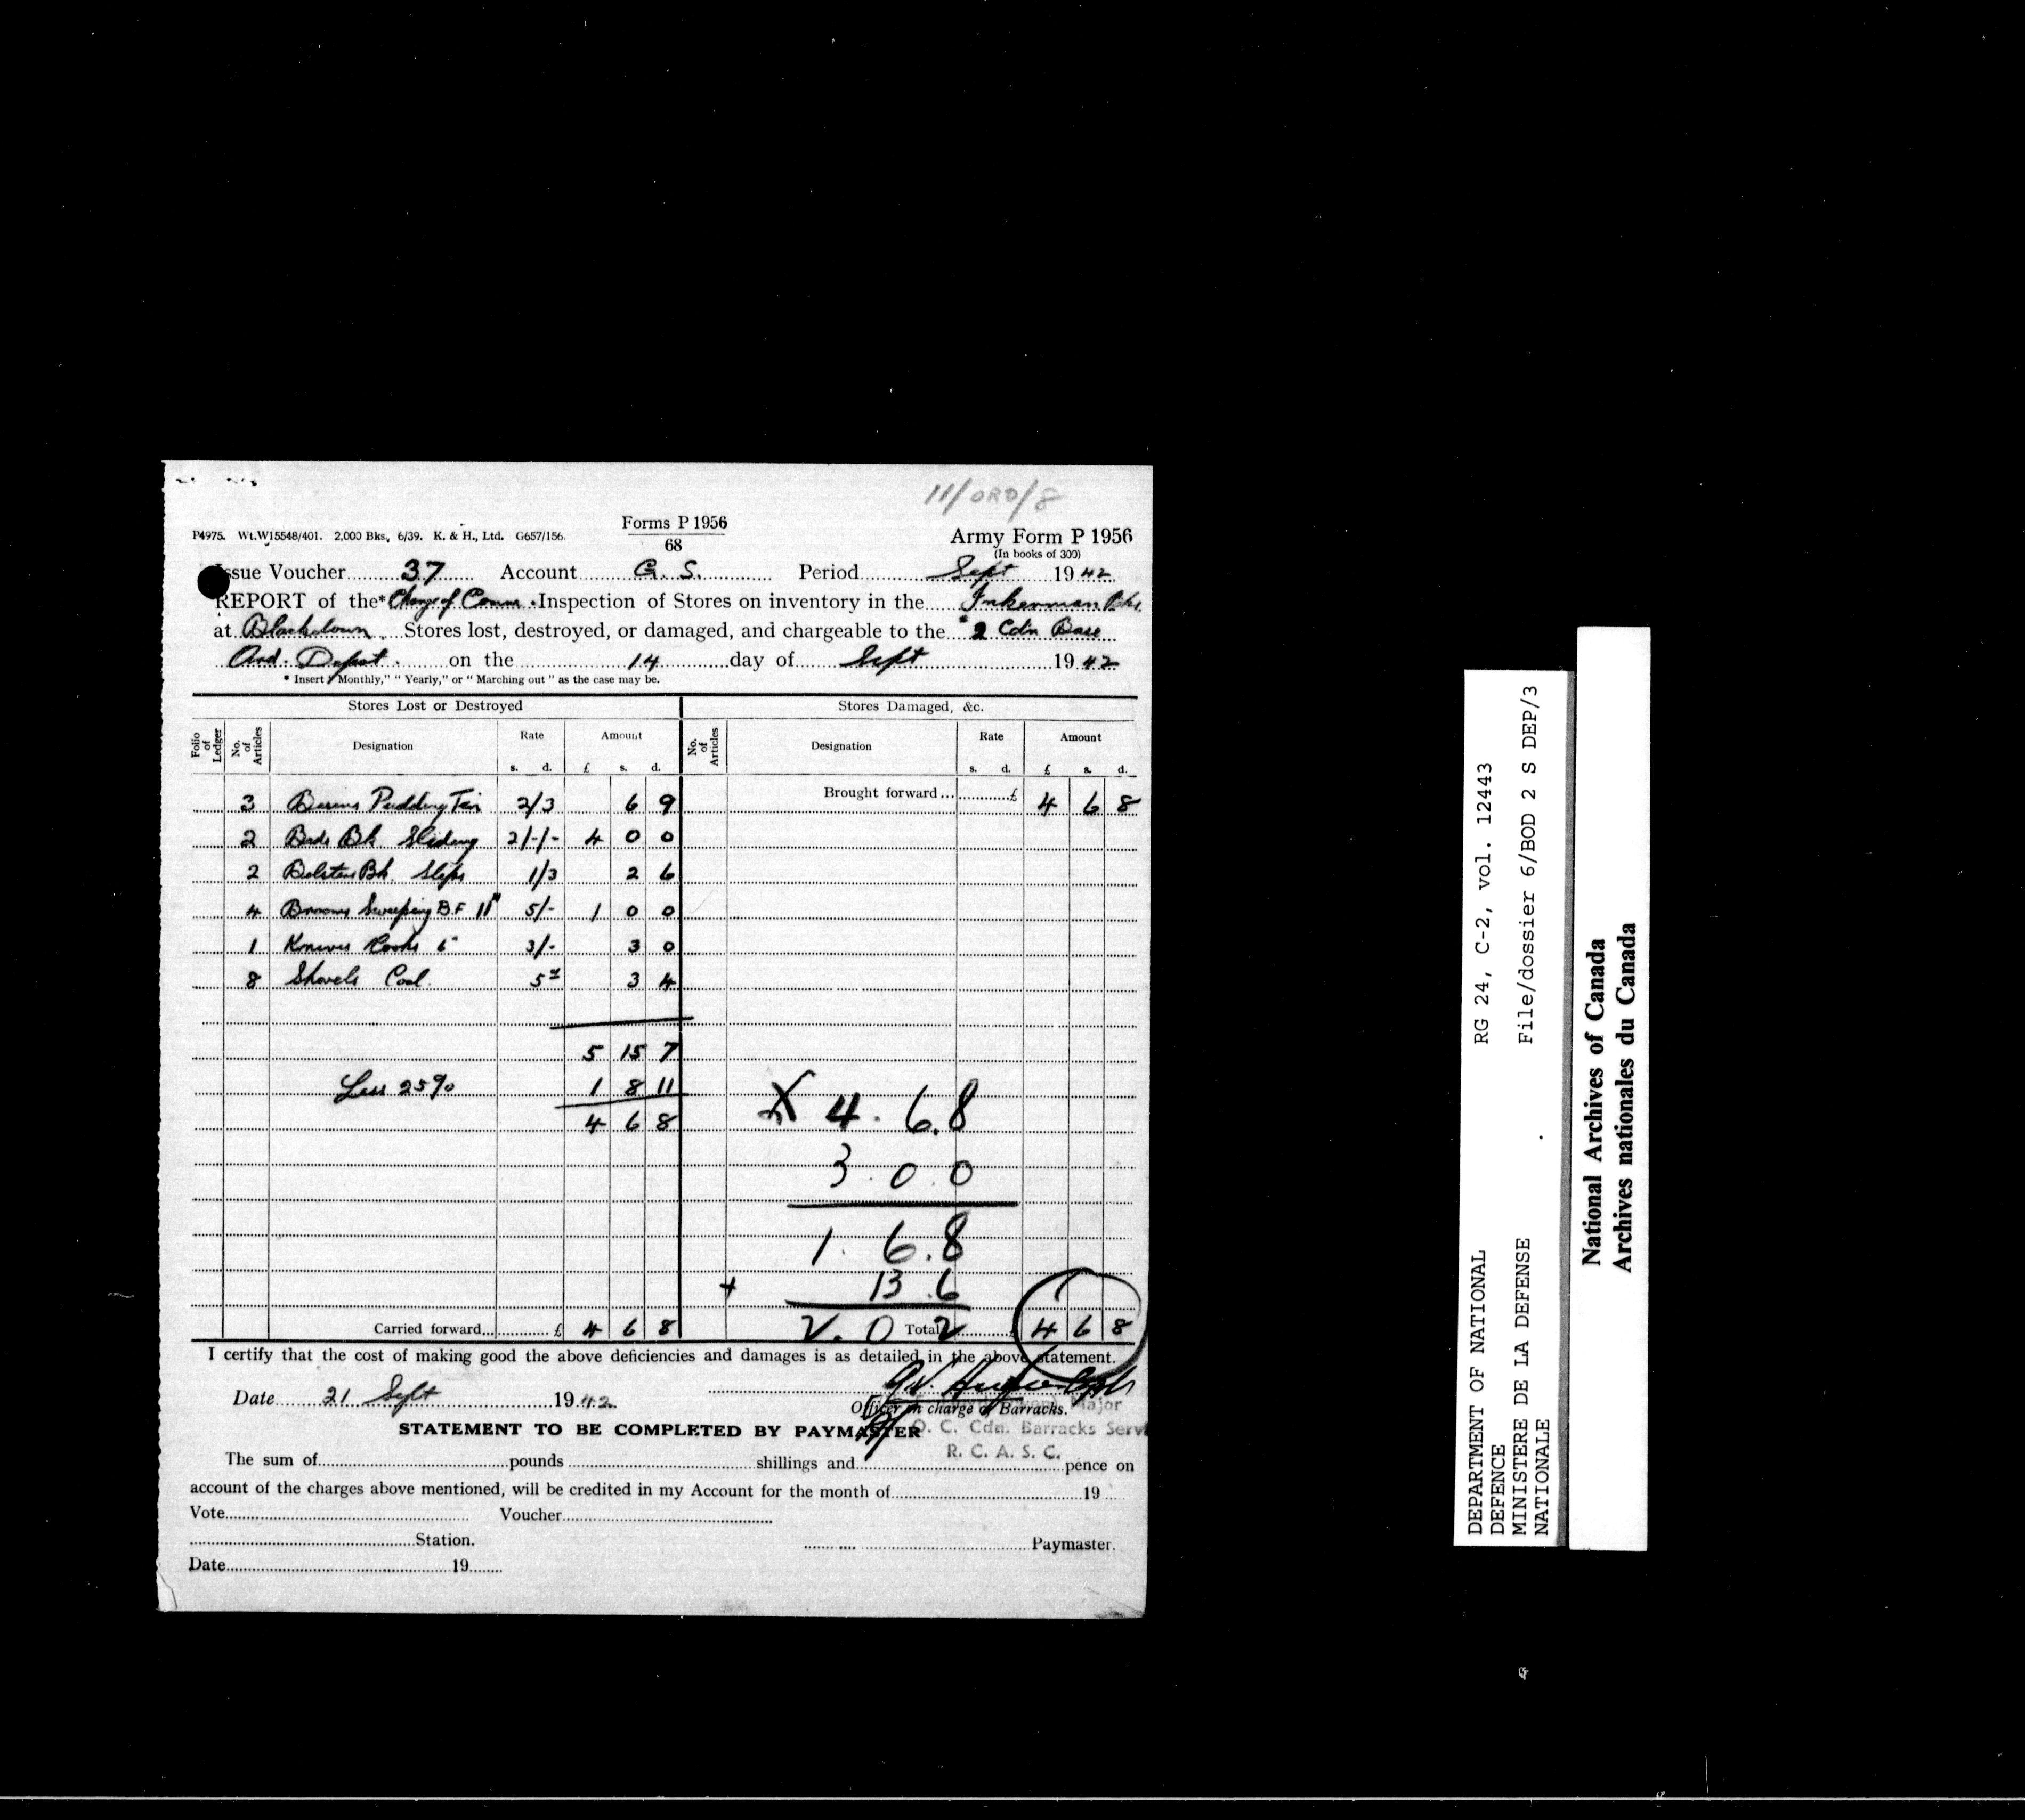 11/ORD/8
P4975. Wt.W15548/401. 2,000 Bks, 6/39. K. & H., Ltd. G657/156.
Forms P 1956
68
Army Form P 1956
(In books of 300)
Issue Voucher 37 Account G. S. Period Sept 1942
REPORT of the* Change of Comm Inspection of Stores on inventory in the Inkerman Bks.
at Blackdown Stores lost, destroyed, or damaged, and chargeable to the * 2 Cdn Base
Ord. Depot. on the 14 day of Sept 1942
* Insert "Monthly," "Yearly," or "Marching out" as the case may be.
Stores Lost or Destroyed Stores Damaged, &c.
Folio of Ledger No. of Articles Designation Rate Amount No. of Articles Designation Rate Amount
s. d. £ s. d. s. d. £ s. d.
Brought forward... £ 4 6 8
3 Basins Pudding Tin 2/3 6 9
2 Beds Bk. Sliding 2/-/- 4 0 0
2 Bolsters Bk. Slips 1/3 2 6
4 Brooms Sweeping B.F 11" 5/- 1 0 0
1 Knives Cooks 6" 3/- 3 0
8 Shovels Coal 5d 3 4
5 15 7
Less 25% 1 8 11
4 6 8
X 4. 6. 8
3. 0. 0
1. 6. 8
+ 13. 6
2. 0. 2
Carried forward... £ 4 6 8 Total 4 6 8
I certify that the cost of making good the above deficiencies and damages is as detailed in the above statement.
Date 21 Sept 1942
Officer in charge of Barracks.
Major
O. C. Cdn. Barracks Serv
R. C. A. S. C.
STATEMENT TO BE COMPLETED BY PAYMASTER
The sum of pounds shillings and pence on
account of the charges above mentioned, will be credited in my Account for the month of 19
Vote Voucher
Station.
Paymaster.
Date 19
DEPARTMENT OF NATIONAL DEFENCE
MINISTERE DE LA DEFENSE NATIONALE
RG 24, C-2, vol. 12443
File/dossier 6/BOD 2 S DEP/3
National Archives of Canada
Archives nationales du Canada